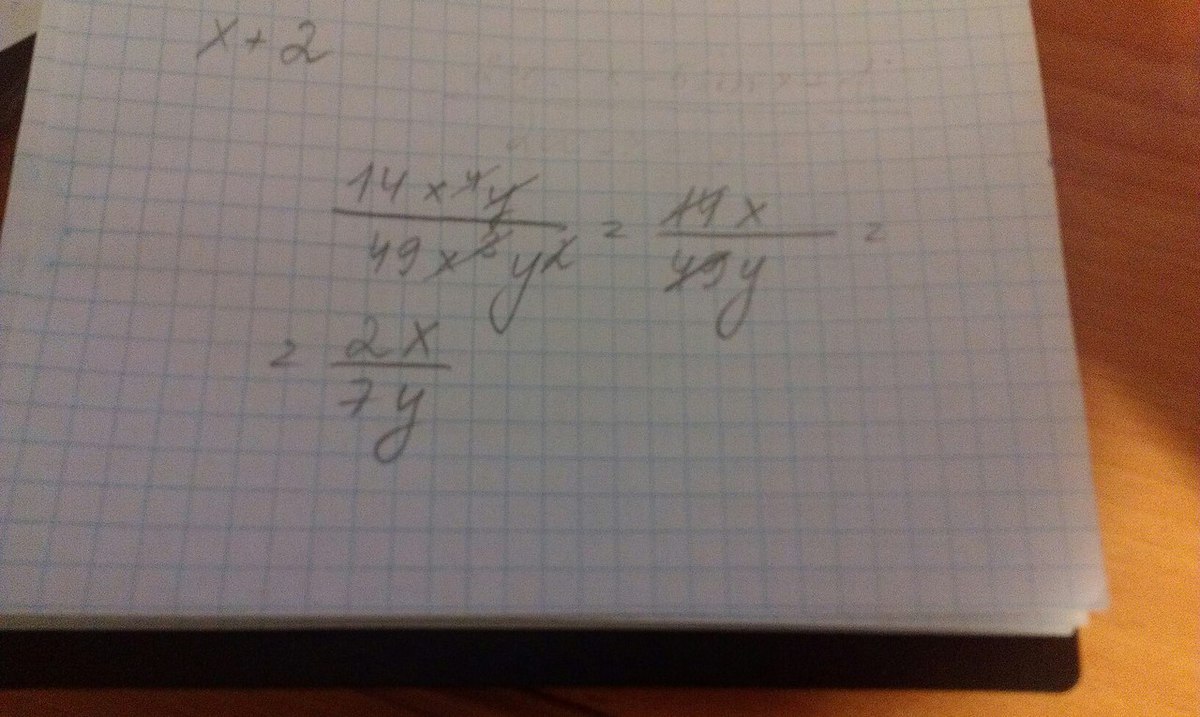 x + 2
14x⁴y / 49x³y² = 14x / 49y =
= 2x / 7y